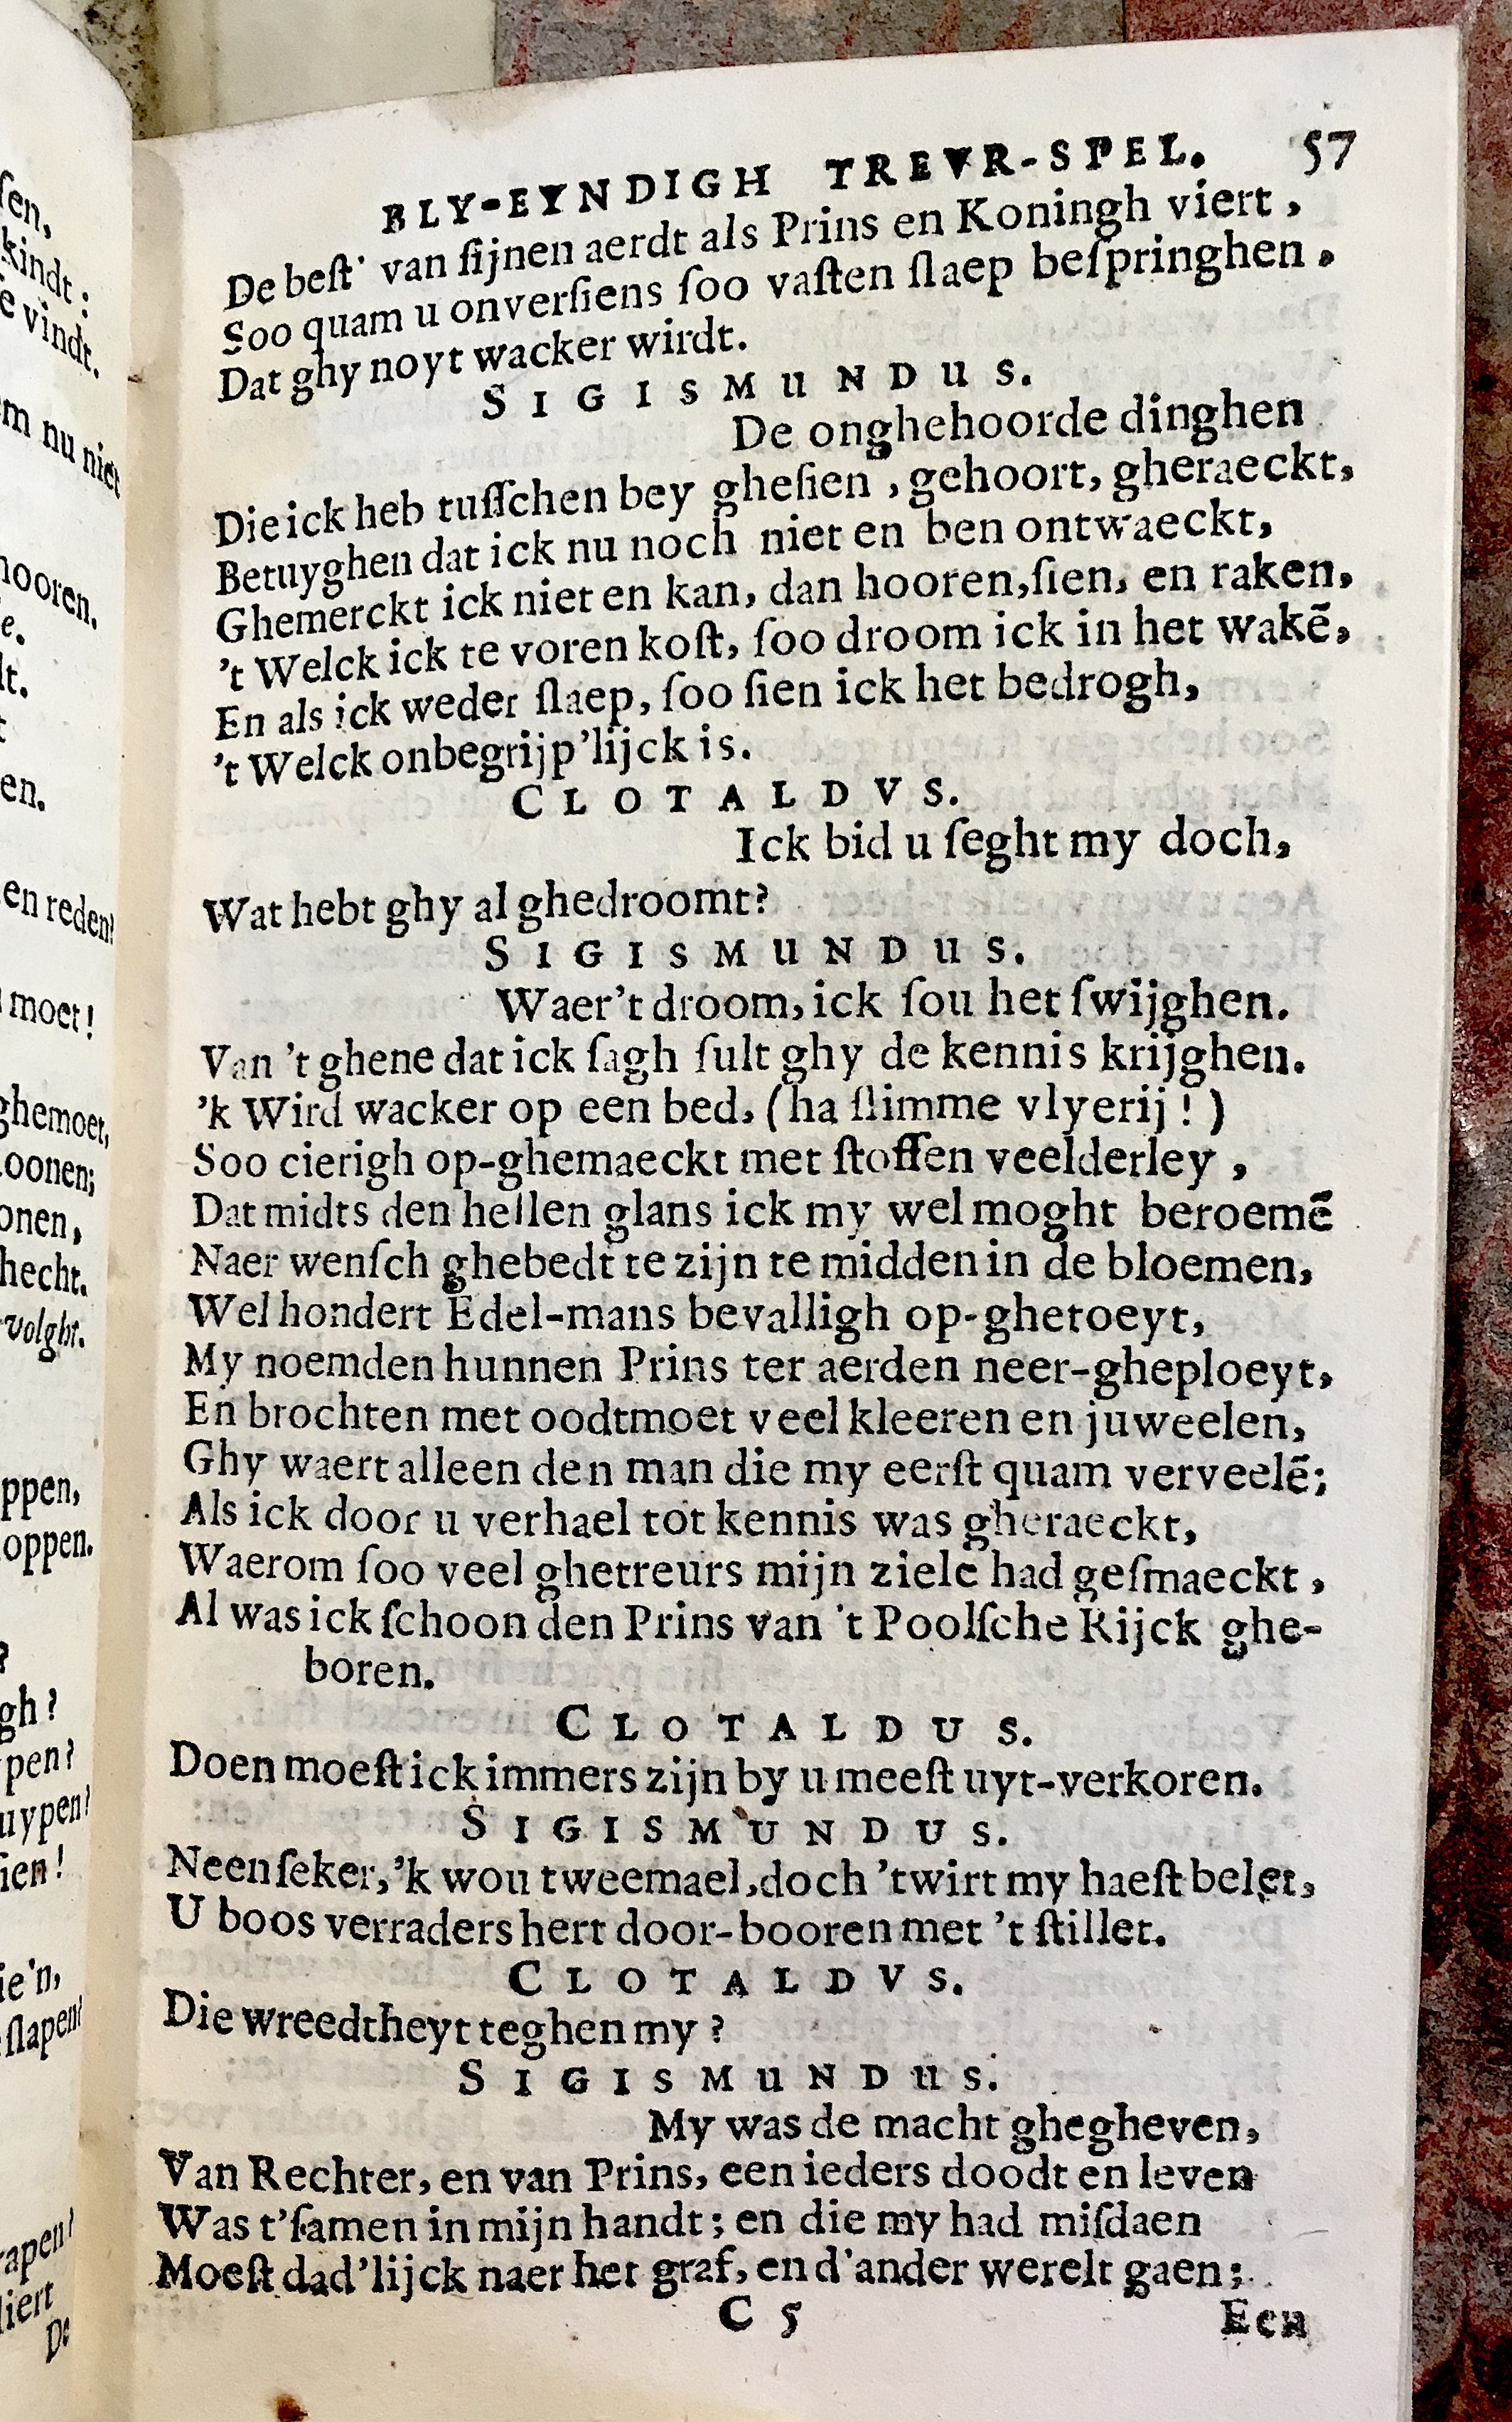 BLY-EYNDIGH TREVR-SPEL. 57
De beſt' van ſijnen aerdt als Prins en Koningh viert,
Soo quam u onverſiens ſoo vaſten ſlaep beſpringhen,
Dat ghy noyt wacker wirdt.
SIGISMUNDUS.
De onghehoorde dinghen
Die ick heb tuſſchen bey gheſien, gehoort, gheraeckt,
Betuyghen dat ick nu noch niet en ben ontwaeckt,
Ghemerckt ick niet en kan, dan hooren, ſien, en raken,
't Welck ick te voren koſt, ſoo droom ick in het wakẽ,
En als ick weder ſlaep, ſoo ſien ick het bedrogh,
't Welck onbegrijp'lijck is.
CLOTALDVS.
Ick bid u ſeght my doch,
Wat hebt ghy al ghedroomt?
SIGISMUNDUS.
Waer't droom, ick ſou het ſwijghen.
Van 't ghene dat ick ſagh ſult ghy de kennis krijghen.
'k Wird wacker op een bed, (ha ſlimme vlyerij!)
Soo cierigh op-ghemaeckt met ſtoffen veelderley,
Dat midts den hellen glans ick my wel moght beroemẽ
Naer wenſch ghebedt te zijn te midden in de bloemen,
Wel hondert Edel-mans bevalligh op-ghetoeyt,
My noemden hunnen Prins ter aerden neer-gheploeyt,
En brochten met oodtmoet veel kleeren en juweelen,
Ghy waert alleen den man die my eerſt quam verveelẽ;
Als ick door u verhael tot kennis was gheraeckt,
Waerom ſoo veel ghetreurs mijn ziele had geſmaeckt,
Al was ick ſchoon den Prins van 't Poolſche Rijck ghe-
boren.
CLOTALDUS.
Doen moeſt ick immers zijn by u meeſt uyt-verkoren.
SIGISMUNDUS.
Neen ſeker, 'k wou tweemael, doch 't wirt my haeſt belet,
U boos verraders hert door-booren met 't ſtillet.
CLOTALDVS.
Die wreedtheyt teghen my?
SIGISMUNDUS.
My was de macht ghegheven,
Van Rechter, en van Prins, een ieders doodt en leven
Was t'ſamen in mijn handt; en die my had miſdaen
Moeſt dad'lijck naer het graf, en d'ander werelt gaen;
C 5 Een